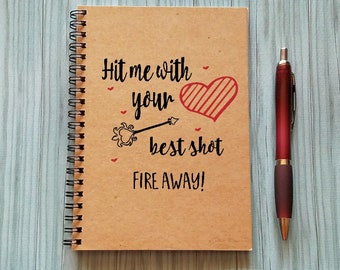 Hit me with
your
best shot
FIRE AWAY!